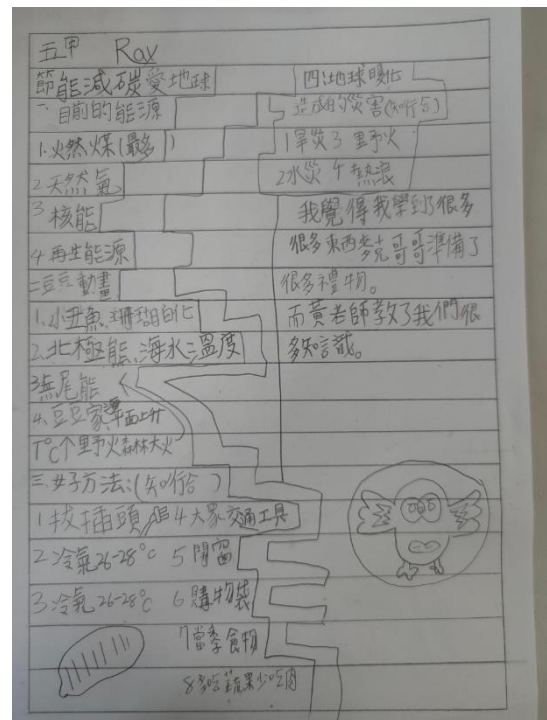 五甲 Ray
節能減碳愛地球
一、目前的能源
1.火然煤(最多)
2天然氣
3核能
4再生能源
二豆豆動畫
1.小丑魚.珊瑚白化
2.北極能.海水溫度
3無尾能
4.豆豆家 平面上升
1℃个野火森林大火
三.好方法:(知行合)
1拔插頭 4大眾交通工具
2冷氣26-28℃ 5閉窗
3.冷氣26-28℃ 6購物袋
7當季食物
8多吃蔬果少吃肉
四:地球暖化
造成的災害(知行合)
1旱災3野火
2水災4熱浪
我覺得我學到了很多
很多東西麥克哥哥準備了
很多禮物。
而黃老師教了我們很
多知識。